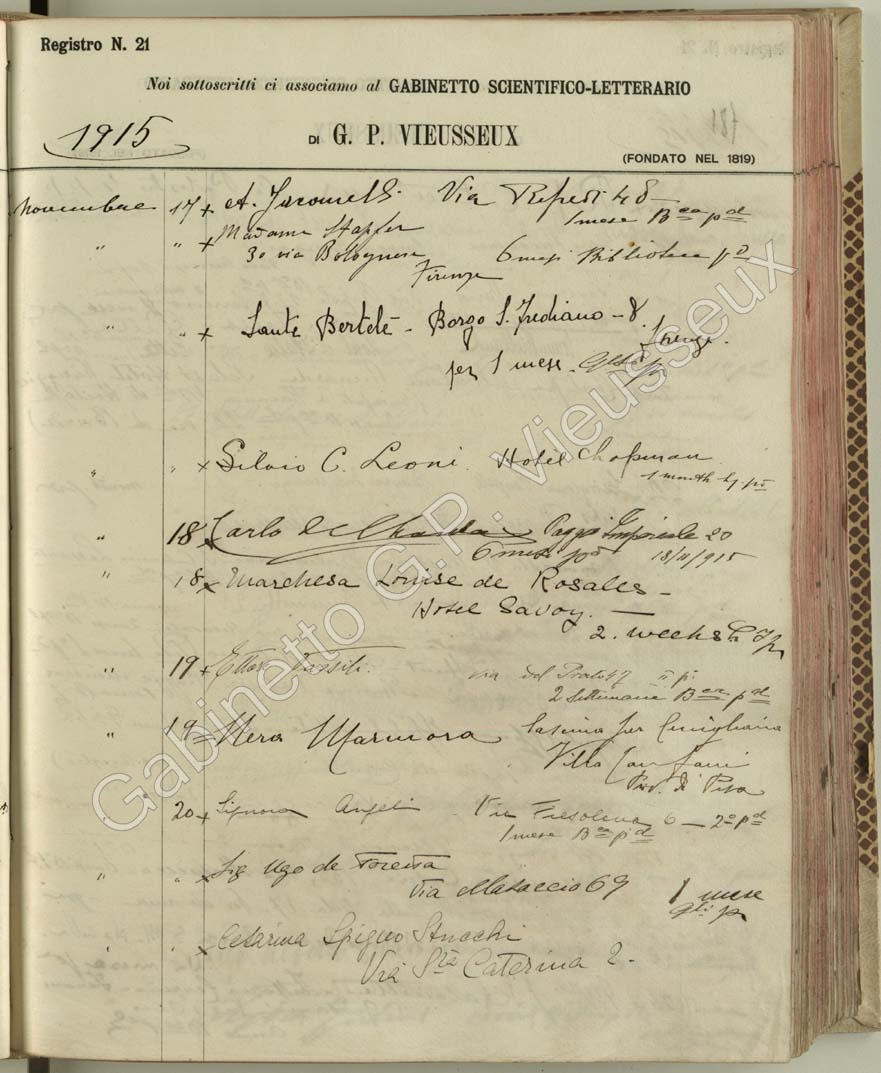 Registro N. 21
Noi sottoscritti ci associamo al GABINETTO SCIENTIFICO-LETTERARIO
1915
DI G. P. VIEUSSEUX
(FONDATO NEL 1819)
novembre 17 × A. Via Refredi 48
1 mese Bca pd
" " × Madame Stapfer
30 via Bolognese 6 mesi Biblioteca pd
Firenze
" " × Sante Bertelè - Borgo S. Frediano - 8.
Firenze.
per 1 mese.
" " × Silvio C. Leoni. Hotel Chapman
1 month pd
" 18 × Carlo Poggio Imperiale 20
6 mesi pd 18/11/915
" 18 × Marchesa Louise de Rosales -
Hotel Savoy. —
2. weeks
" 19 × Ettore via del Prato 47 II p.
2 Settimane Bca pd
" 19 = Nera Marmora Cascina per
Villa
Prov. di Pisa
" 20 × Signora Angeli Via Fiesolana 6 — 2° pd
1 mese Bca pd
" " × Sig Ugo de
Via Masaccio 69 1 mese
" × Cesarina Stucchi
Via Sta Caterina 2.
Gabinetto G.P. Vieusseux